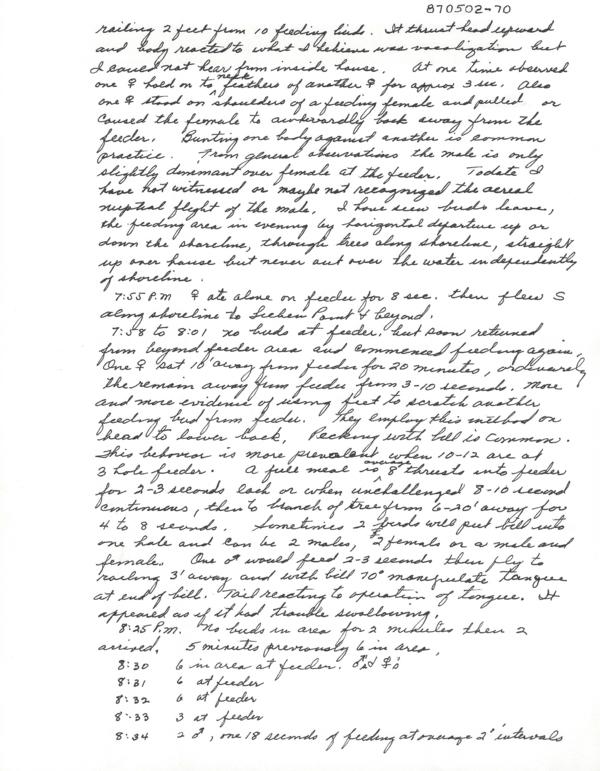 870502-70
railing 2 feet from 10 feeding birds. It thrust head upward
and body reacted to what I believe was vocalization but
I could not hear from inside house. At one time observed
one ♀ hold on to neck feathers of another ♀ for approx 3 sec. Also
one ♀ stood on shoulders of a feeding female and pulled or
caused the female to awkwardly back away from the
feeder. Bunting one body against another is common
practice. From general observations the male is only
slightly dominant over female at the feeder. To date I
have not witnessed or maybe not recognized the aereal
nuptial flight of the male. I have seen birds leave,
the feeding area in evening by horizontal departure up or
down the shoreline, through trees along shoreline, straight
up over house but never out over the water independently
of shoreline.
7:55 P.M ♀ ate alone on feeder for 8 sec. then flew S
along shoreline to Lichen Point & beyond.
7:58 to 8:01 no birds at feeder, but soon returned
from beyond feeder area and commenced feeding again.
One ♀ sat 10' away from feeder for 20 minutes, ordinarily
the remain away from feeder from 3-10 seconds. More
and more evidence of using feet to scratch another
feeding bird from feeder. They employ this method on
head to lower back. Pecking with bill is common.
This behavior is more prevalent when 10-12 are at
3 hole feeder. A full meal is average 8 thrusts into feeder
for 2-3 seconds each or when unchallenged 8-10 second
continuous, then to branch of tree from 6-20' away for
4 to 8 seconds. Sometimes 2 birds will put bill into
one hole and can be 2 males, 2 females or a male and
female. One ♂ would feed 2-3 seconds then fly to
railing 3' away and with bill 70° manipulate tongue
at end of bill. Tail reacting to operation of tongue. It
appeared as if it had trouble swallowing.
8:25 P.M. No birds in area for 2 minutes then 2
arrived. 5 minutes previously 6 in area.
8:30 6 in area at feeder. ♂s & ♀s
8:31 6 at feeder
8:32 6 at feeder
8:33 3 at feeder
8:34 2 ♂, one 18 seconds of feeding at average 2" intervals